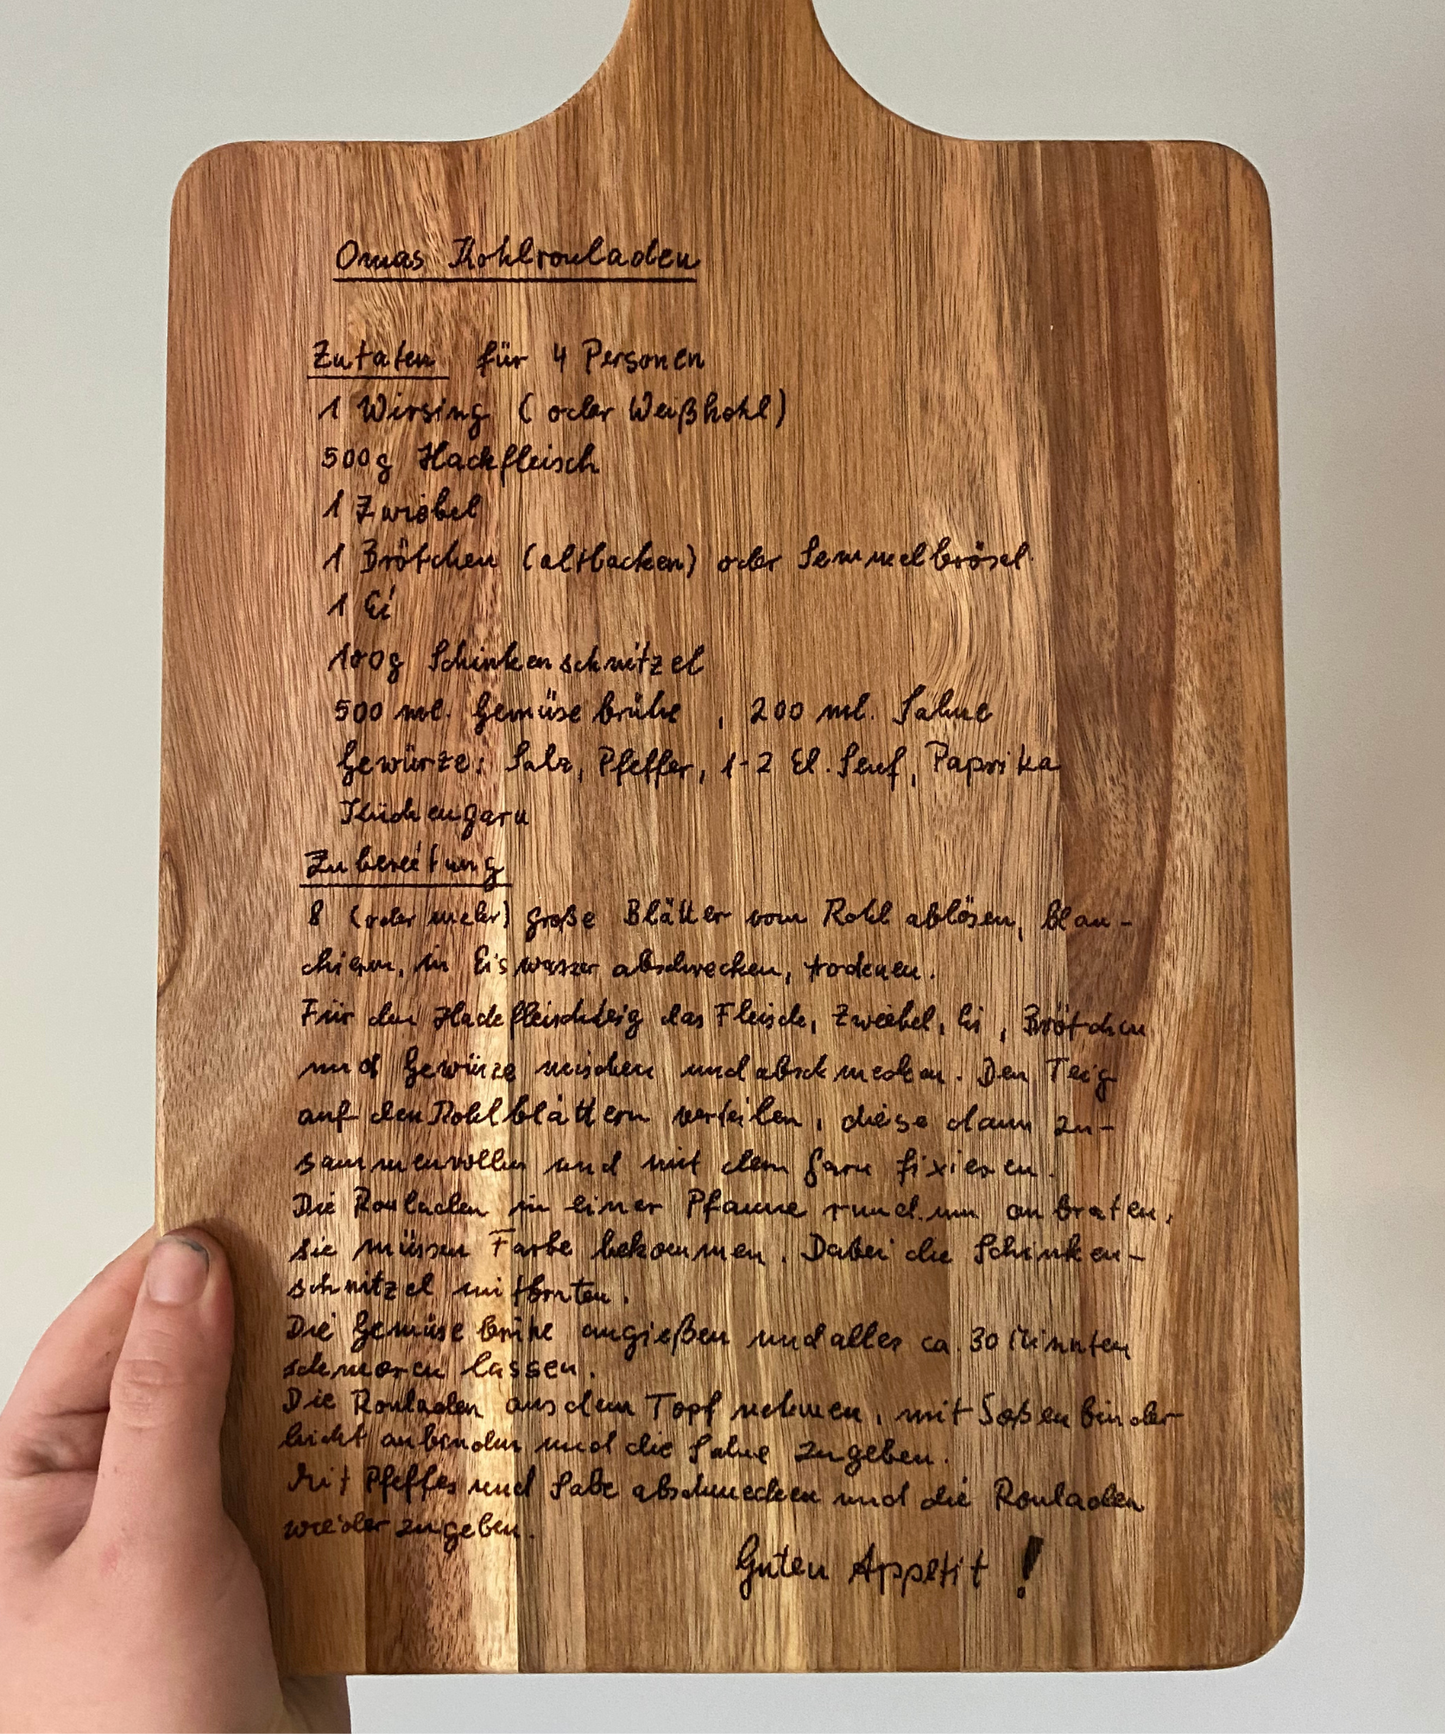 Omas Kohlrouladen
Zutaten für 4 Personen
1 Wirsing ( oder Weißkohl)
500g Hackfleisch
1 Zwiebel
1 Brötchen (altbacken) oder Semmelbrösel
1 Ei
100g Schinkenschnitzel
500 ml. Gemüsebrühe , 200 ml. Sahne
Gewürze: Salz, Pfeffer, 1-2 El. Senf, Paprika
Küchengarn
Zubereitung
8 (oder mehr) große Blätter vom Kohl ablösen, blan-
chieren, in Eiswasser abschrecken, trocknen.
Für den Hackfleischteig das Fleisch, Zwiebel, Ei, Brötchen
und Gewürze mischen und abschmecken. Den Teig
auf den Kohlblättern verteilen, diese dann zu-
sammenrollen und mit dem Garn fixieren.
Die Rouladen in einer Pfanne rundum anbraten,
sie müssen Farbe bekommen. Dabei die Schinken-
schnitzel mitbraten.
Die Gemüsebrühe angießen und alles ca. 30 Minuten
schmoren lassen.
Die Rouladen aus dem Topf nehmen, mit Soßenbinder
leicht anbinden und die Sahne zugeben.
Mit Pfeffer und Salz abschmecken und die Rouladen
wieder zugeben.
Guten Appetit !